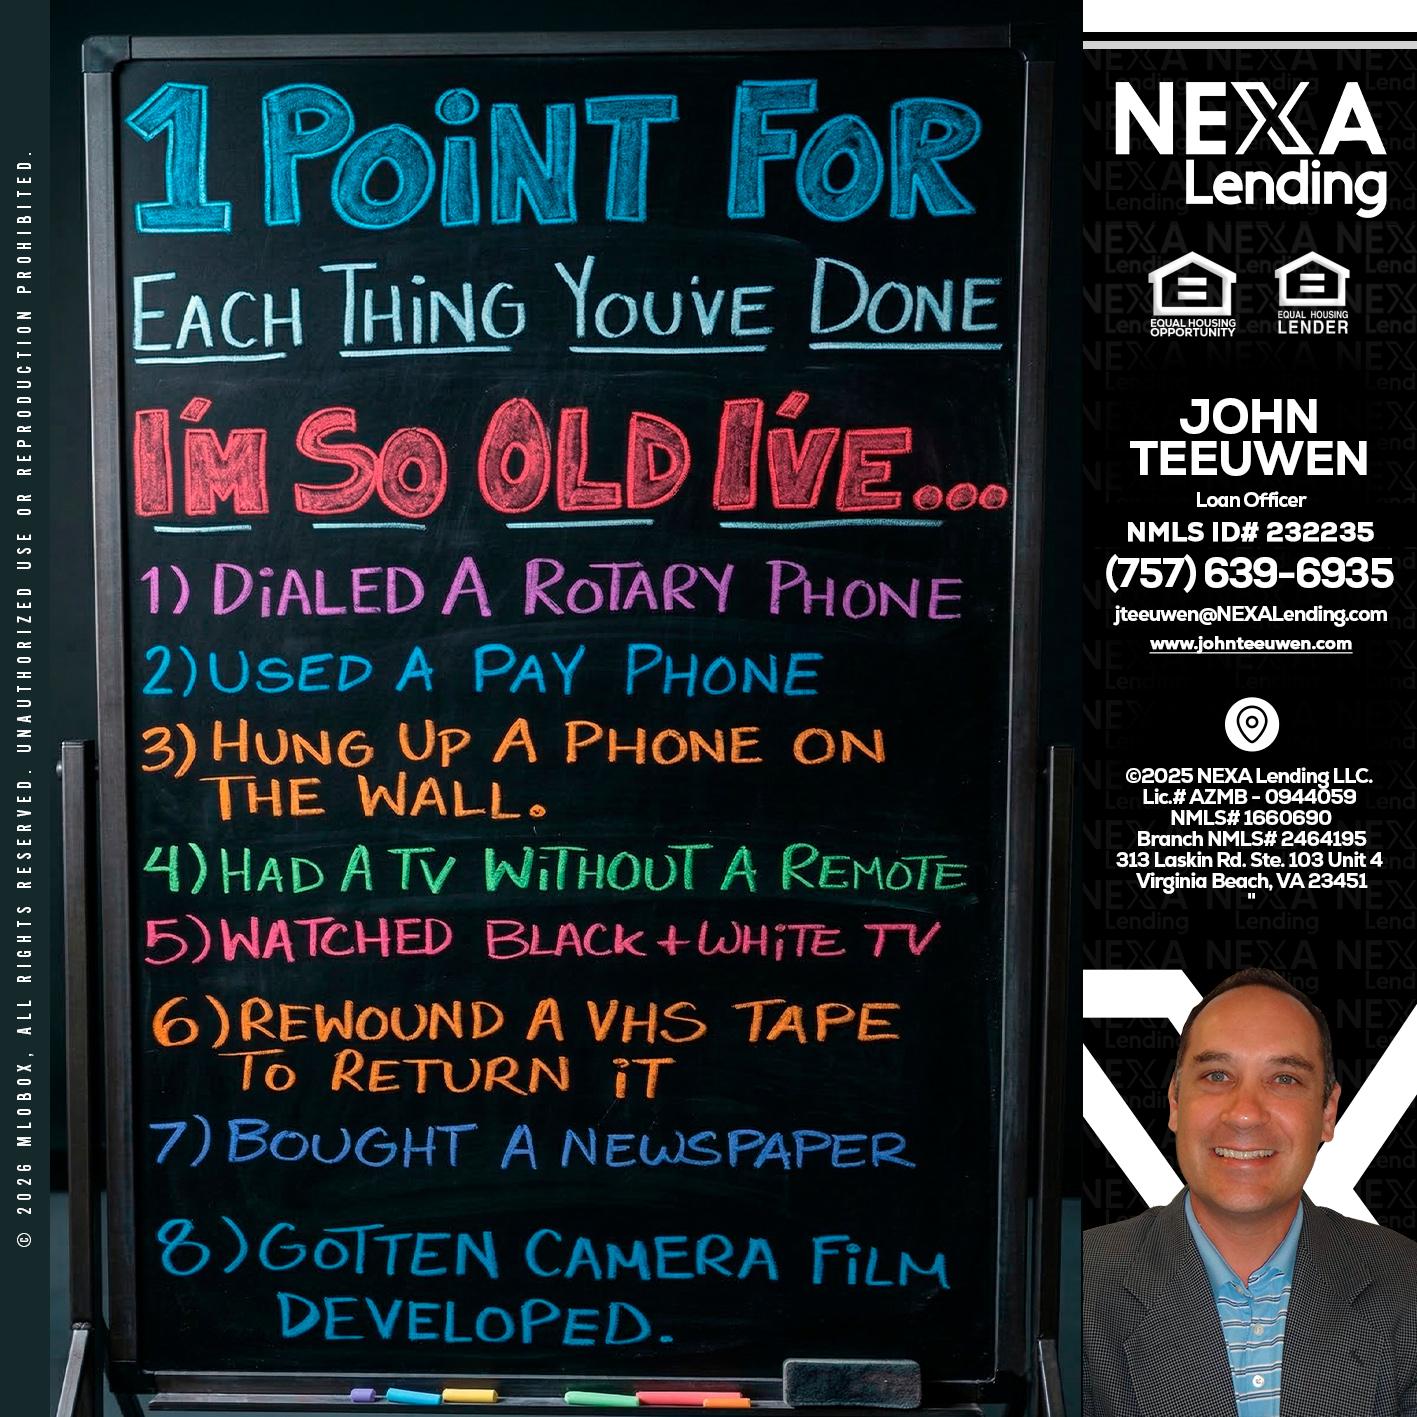 © 2026 MLOBOX, ALL RIGHTS RESERVED. UNAUTHORIZED USE OR REPRODUCTION PROHIBITED.
1 POiNT FOR
EACH THiNG YOU'VE DONE
I'M SO OLD I'VE...
1) DiALED A ROTARY PHONE
2) USED A PAY PHONE
3) HUNG UP A PHONE ON
THE WALL.
4) HAD A TV WiTHOUT A REMOTE
5) WATCHED BLACK + WHiTE TV
6) REWOUND A VHS TAPE
TO RETURN iT
7) BOUGHT A NEWSPAPER
8) GOTTEN CAMERA FiLM
DEVELOPED.
NEXA
Lending
EQUAL HOUSING
OPPORTUNITY
EQUAL HOUSING
LENDER
JOHN
TEEUWEN
Loan Officer
NMLS ID# 232235
(757) 639-6935
jteeuwen@NEXALending.com
www.johnteeuwen.com
©2025 NEXA Lending LLC.
Lic.# AZMB - 0944059
NMLS# 1660690
Branch NMLS# 2464195
313 Laskin Rd. Ste. 103 Unit 4
Virginia Beach, VA 23451
"